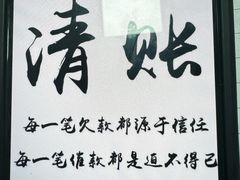 清账
每一笔欠款都源于信任
每一笔催款都是迫不得已